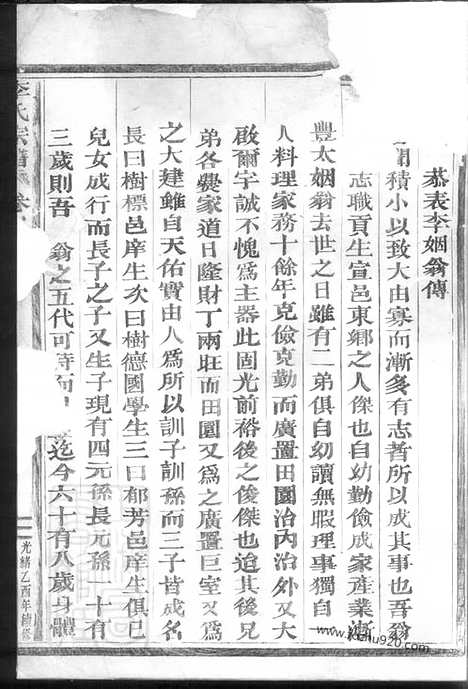 恭表李姻翁傳
積小以致大由寡而漸多有志者所以成其事也吾翁
志職貢生宣邑東鄉之人傑也自幼勤儉成家產業漸
豐太姻翁去世之日雖有二弟俱自幼讀無暇理事獨自一
人料理家務十餘年克儉克勤而廣置田園治內治外又大
啟爾宇誠不愧為主器此固光前裕後之俊傑也迨其後兄
弟各爨家道日隆財丁兩旺而田園又為之廣置巨室又為
之大建雖自天佑實由人為所以訓子訓孫而三子皆成名
長曰樹標邑庠生次曰樹德國學生三曰郁芳邑庠生俱已
兒女成行而長子之子又生子現有四元孫長元孫一十有
三歲則吾 翁之五代可待而 迄今六十有八歲身體
氏宗譜 卷
光緒乙酉年續修